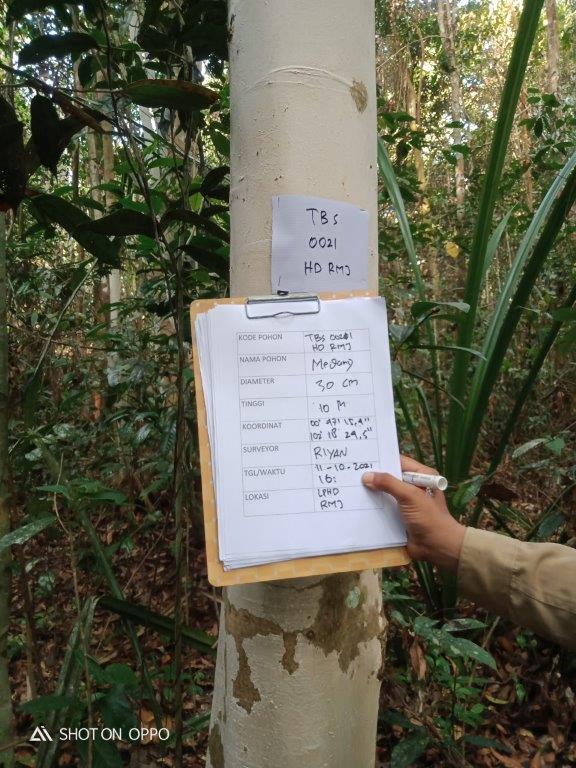 TBS
0021
HD RMJ
KODE POHON TBS 0021
HD RMJ
NAMA POHON Medang
DIAMETER 30 CM
TINGGI 10 M
KOORDINAT
SURVEYOR RIYAN
TGL/WAKTU 11-10-2021
16:
LOKASI LPHD
RMJ
SHOT ON OPPO